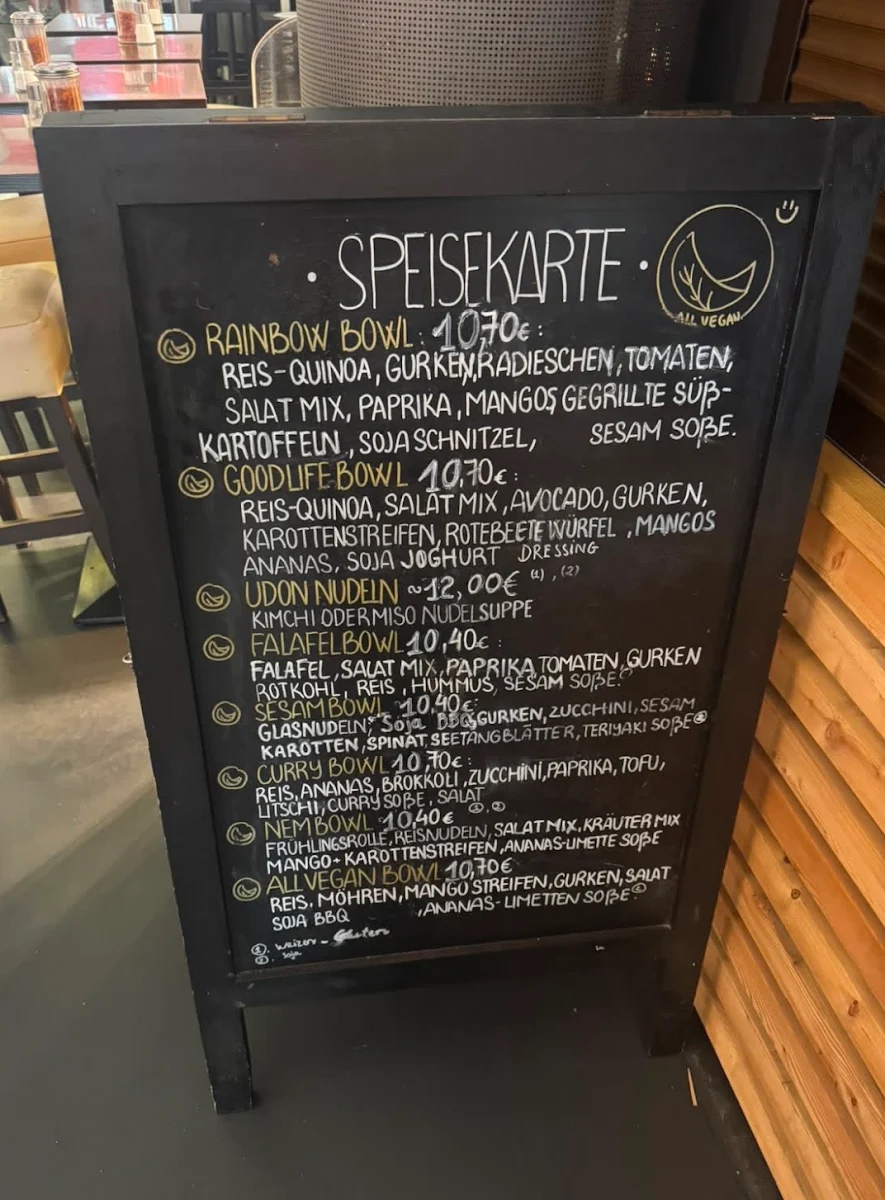 · SPEISEKARTE ·
ALL VEGAN
RAINBOW BOWL: 10,70€:
REIS-QUINOA, GURKEN, RADIESCHEN, TOMATEN,
SALAT MIX, PAPRIKA, MANGOS GEGRILLTE SÜß-
KARTOFFELN, SOJA SCHNITZEL, SESAM SOßE.
GOODLIFE BOWL 10,70€:
REIS-QUINOA, SALAT MIX, AVOCADO, GURKEN,
KAROTTENSTREIFEN, ROTEBEETE WÜRFEL, MANGOS
ANANAS, SOJA JOGHURT DRESSING
UDON NUDELN ~12,00€ (1), (2)
KIMCHI ODER MISO NUDELSUPPE
FALAFELBOWL 10,40€:
FALAFEL, SALAT MIX, PAPRIKA TOMATEN, GURKEN
ROTKOHL, REIS, HUMMUS, SESAM SOßE.
SESAMBOWL 10,40€:
GLASNUDELN, Soja BBQ, GURKEN, ZUCCHINI, SESAM
KAROTTEN, SPINAT, SEETANGBLÄTTER, TERIYAKI SOßE
CURRY BOWL 10,70€:
REIS, ANANAS, BROKKOLI, ZUCCHINI, PAPRIKA, TOFU,
LITSCHI, CURRY SOßE, SALAT
NEM BOWL 10,40€
FRÜHLINGSROLLE, REISNUDELN, SALAT MIX, KRÄUTER MIX
MANGO+KAROTTENSTREIFEN, ANANAS-LIMETTE SOßE
ALL VEGAN BOWL 10,70€
REIS, MÖHREN, MANGO STREIFEN, GURKEN, SALAT
SOJA BBQ, ANANAS-LIMETTEN SOßE.
①. Weizen - Gluten
②. Soja